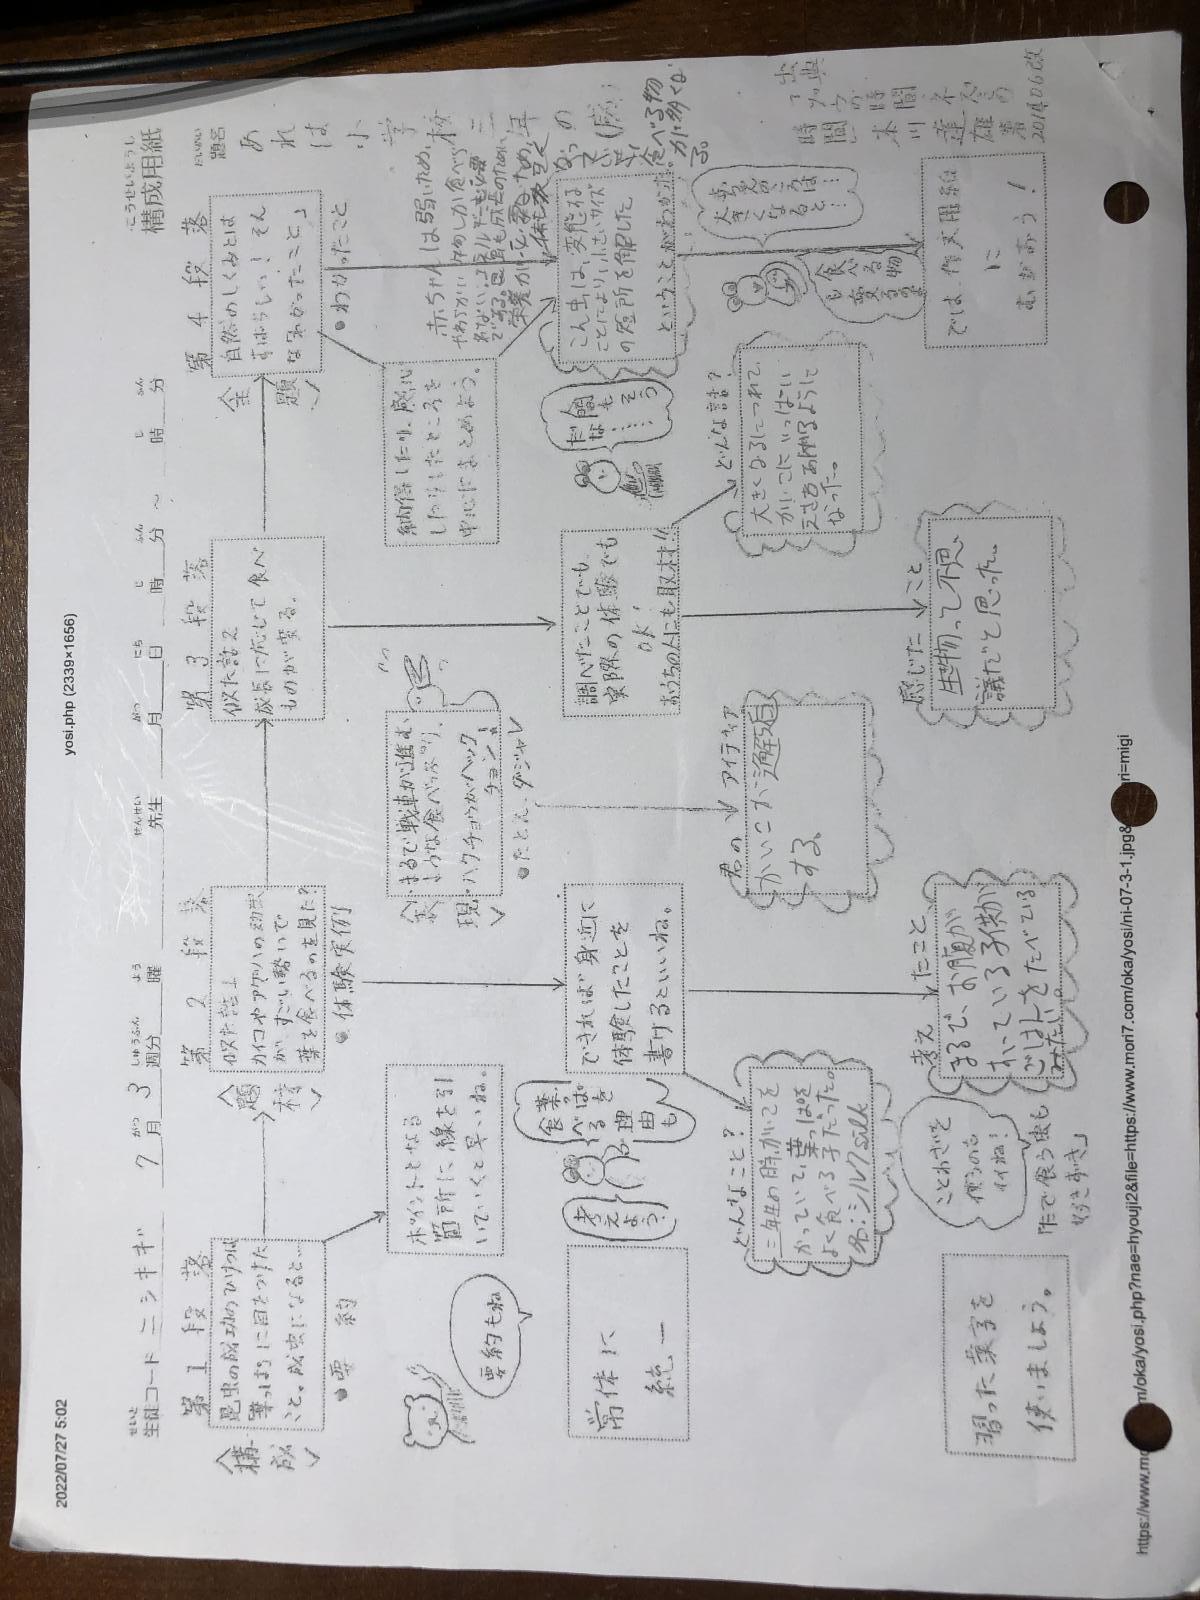 2022/07/27 5:02
yosi.php (2339×1656)
構成用紙
こうせいようし
生徒コード ニシキギ
せいと
7月 3週分
がつ
しゅうぶん
曜
よう
先生
せんせい
月
がつ
日
にち
時
じ
分
ふん
～
時
じ
分
ふん
題名
だいめい
あれは小学校三年の
〈構成〉
第1段落
昆虫の成功のひけつは
葉っぱに目をつけた
こと。成虫になると…
●要約
ポイントとなる
箇所に線を引
いていくと早いね。
要約もね
常体に
統一
習った漢字を
使いましょう。
〈題材〉
第2段落
似た話1
カイコやアゲハの幼虫
が、すごい勢いで
葉を食べるのを見た?
●体験実例
できれば身近に
体験したことを
書けるといいね。
葉っぱを
食べる
理由も
考えよう?
どんなこと?
三年生の時、かいこを
かっていて、葉っぱを
よく食べる子だったよ。
名:シルクsilk
考えたこと
まるで、お腹が
おいている子供が
ごはんをたべている
みたい。
ことわざを
使うのも
イイね!
「たで食う虫も
好きずき」
第3段落
似た話2
成長に応じて食べ
ものが変る。
〈表現〉
まるで戦車が進む
ような食べっぷり。
ハクチョウがハック
チョン!
●たとえ、ダジャレ
君のアイディア
かいこが邂逅
する
調べたことでも、
実際の体験でも
OK!
おうちの人にも取材!!
どんな話?
大きくなるにつれて、
かいこにいっぱい
えさをあげるように
なった。
感じたこと
生物って不思
議だと思った。
〈主題〉
第4段落
自然のしくみとは
すばらしい! そん
なわかったこと」
●わかったこと
納得したり、感心
したりしたところを
中心にまとめよう。
人間も
そう
だな……
赤ちゃんは弱いため、
やわらかい物しか食べら
れない、エネルギーも必要
である。
食べる物
が多くな
る。
こん虫は、変態する
ことにより小さいサイズ
の短所を克服した
ということがわかった。
赤ちゃんのころは…
大きくなると…
食べる物
も変えるの
では、作文用紙
に
書がこう!
出典
「ブンブンの時間 ネスとの時間」
木川達雄 著
2014.06改
https://www.mori7.com/oka/yosi.php?nae=hyouji2&file=https://www.mori7.com/oka/yosi/ni-07-3-1.jpg&
ri=migi